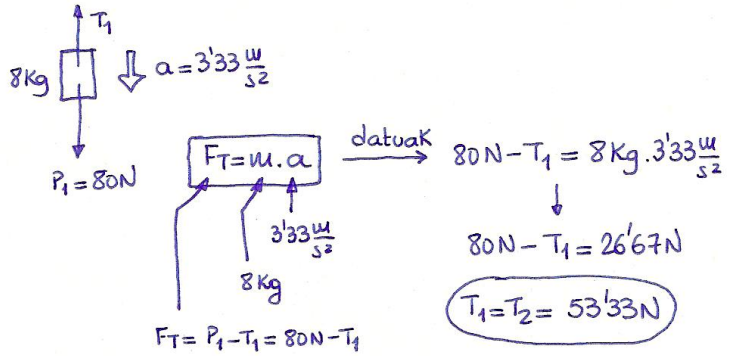 T₁
8Kg
a = 3'33 m/s²
P₁ = 80N
F_T = m . a
datuak
80N - T₁ = 8Kg . 3'33 m/s²
3'33 m/s²
8Kg
80N - T₁ = 26'67N
T₁ = T₂ = 53'33N
F_T = P₁ - T₁ = 80N - T₁